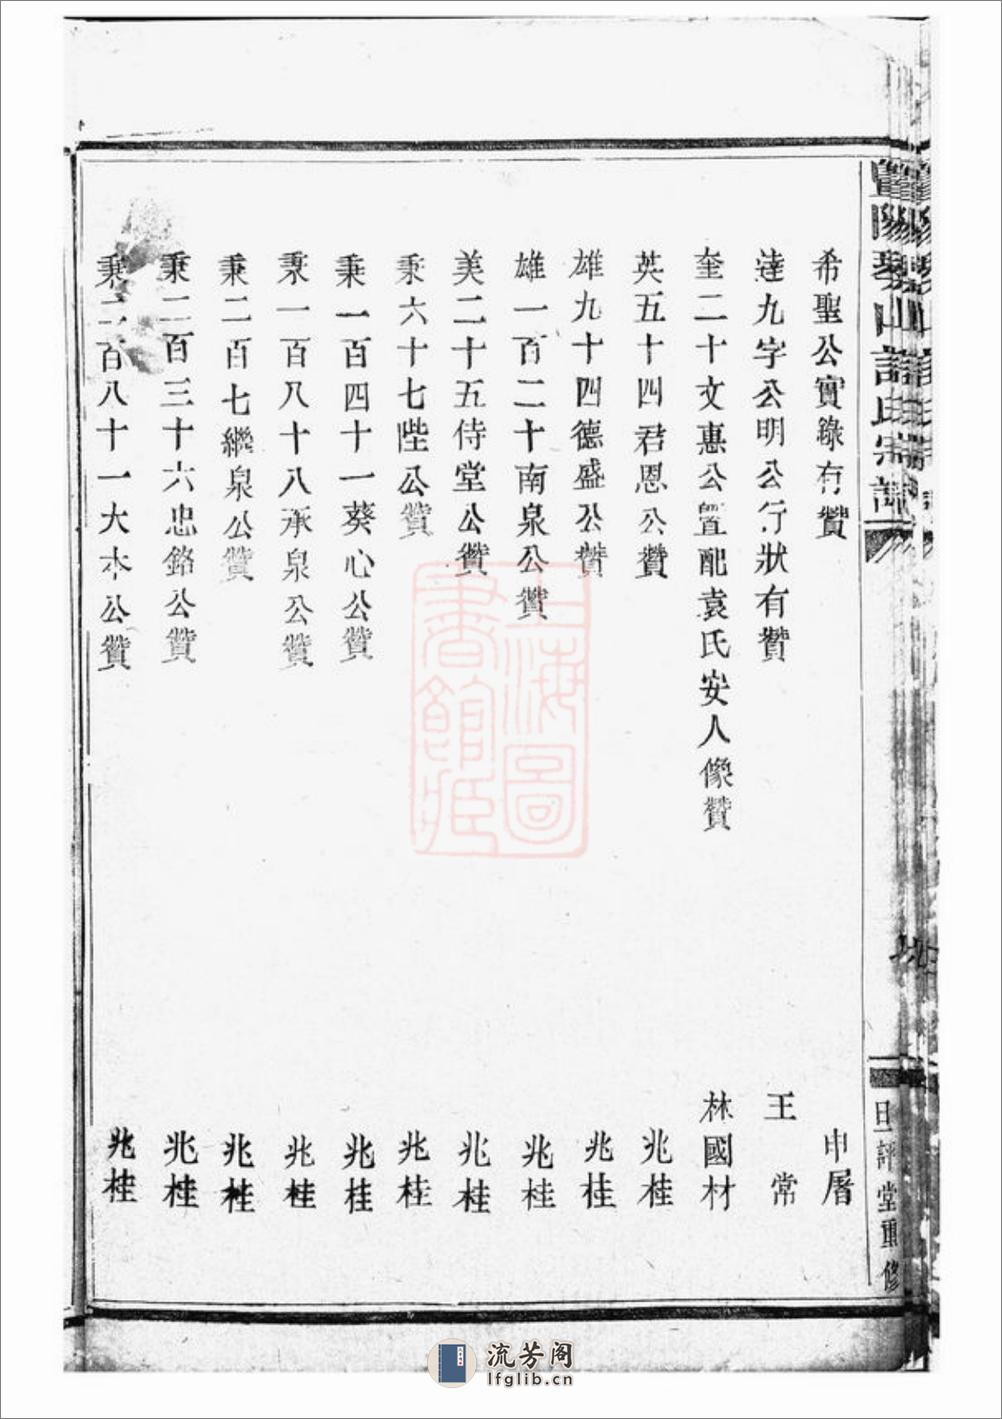 暨陽琴山許氏宗譜
旦評堂重修
希聖公實錄有贊 申屠
達九字公明公行狀有贊 王常
奎二十文惠公曁配袁氏安人像贊 林國材
英五十四君恩公贊 兆桂
雄九十四德盛公贊 兆桂
雄一百二十南泉公贊 兆桂
美二十五侍堂公贊 兆桂
秉六十七陛公贊 兆桂
秉一百四十一葵心公贊 兆桂
秉一百八十八承泉公贊 兆桂
秉二百七繼泉公贊 兆桂
秉二百三十六忠銘公贊 兆桂
秉二百八十一大本公贊 兆桂
上海圖
書館藏
流芳阁
lfglib.cn